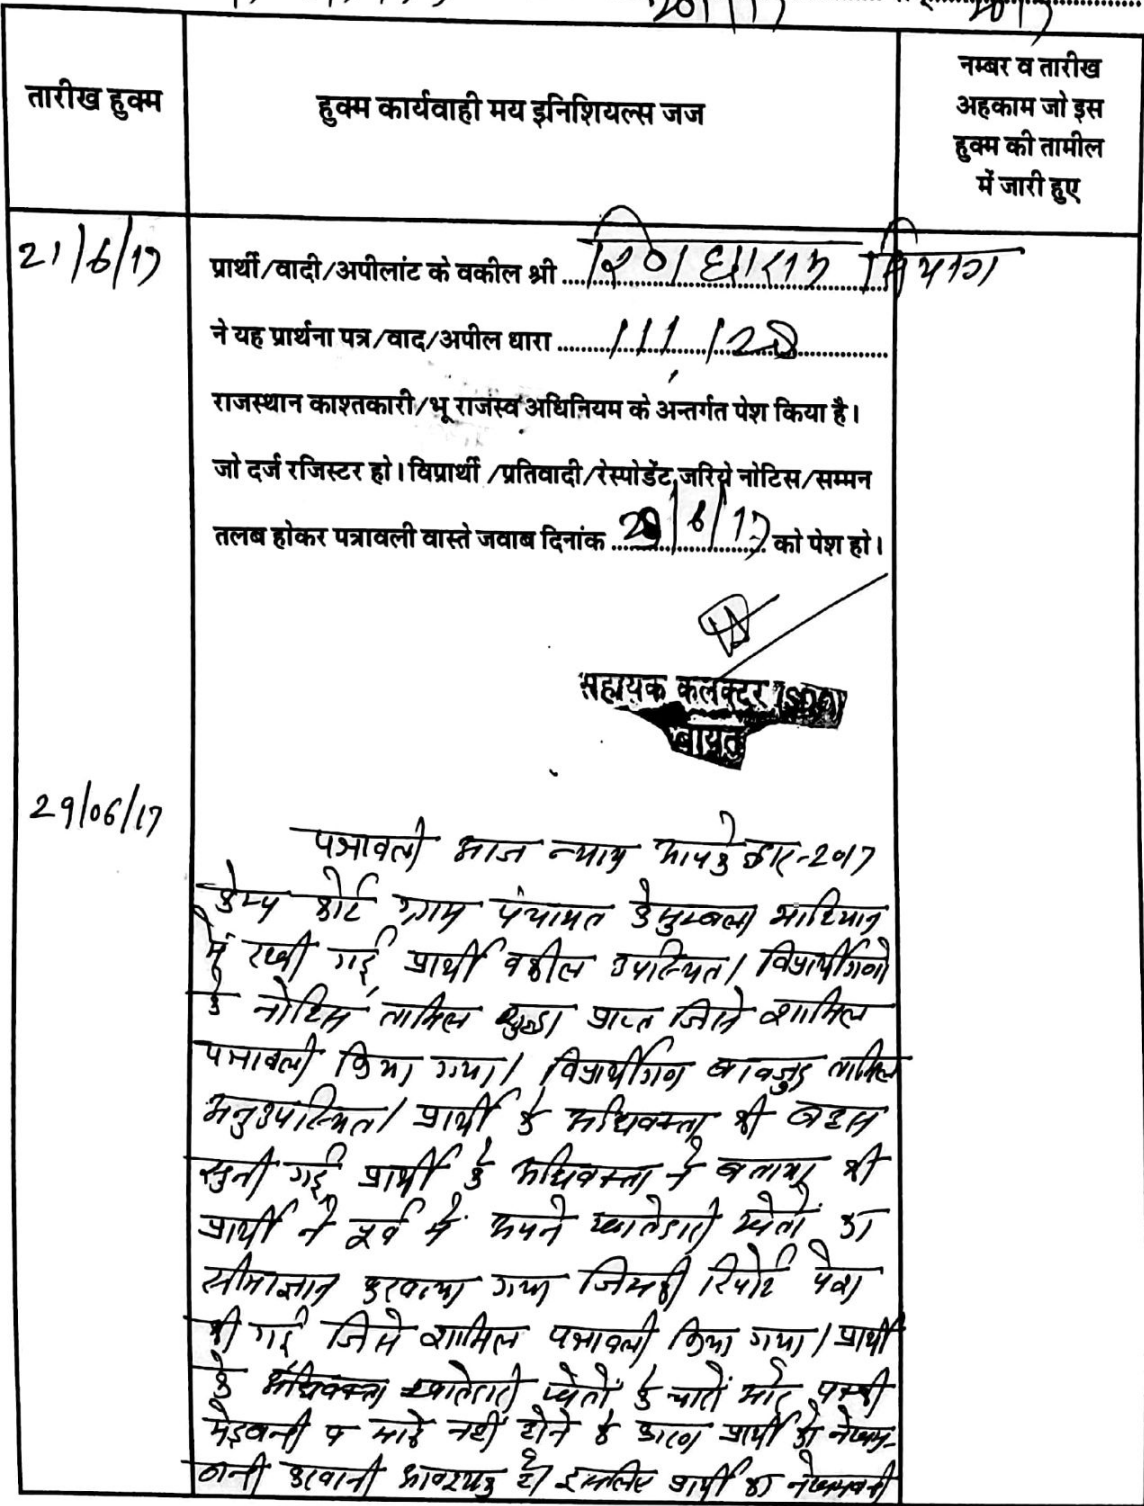 201/17 2017
तारीख हुक्म
हुक्म कार्यवाही मय इनिशियल्स जज
नम्बर व तारीख
अहकाम जो इस
हुक्म की तामील
में जारी हुए
21/6/17
प्रार्थी/वादी/अपीलांट के वकील श्री
ने यह प्रार्थना पत्र/वाद/अपील धारा 111/128
राजस्थान काश्तकारी/भू राजस्व अधिनियम के अन्तर्गत पेश किया है।
जो दर्ज रजिस्टर हो। विप्रार्थी /प्रतिवादी/रेस्पोडेंट जरिये नोटिस/सम्मन
तलब होकर पत्रावली वास्ते जवाब दिनांक 29/6/17 को पेश हो।
सहायक कलक्टर (SDO)
बायतु
29/06/17
पत्रावली आज न्याय आपके द्वार-2017
केम्प कोर्ट ग्राम पंचायत
में रखी गई, प्रार्थी वकील उपस्थित। विप्रार्थीगणो
के नोटिस तामिल शुदा प्राप्त जिसे शामिल
पत्रावली किया गया। विप्रार्थीगण बावजुद तामिल
अनुउपस्थित। प्रार्थी के अधिवक्ता की बहस
सुनी गई, प्रार्थी के अधिवक्ता ने बताया की
प्रार्थी ने पूर्व में अपने खातेदारी खेतों का
सीमाज्ञान करवाया गया जिसकी रिपोर्ट पेश
की गई जिसे शामिल पत्रावली किया गया। प्रार्थी
के अधिवक्ता खातेदारी खेतों के चारों ओर पक्की
मेड़बन्दी व नहीं होने के कारण प्रार्थी को
करवानी आवश्यक है। इसलिए प्रार्थी का